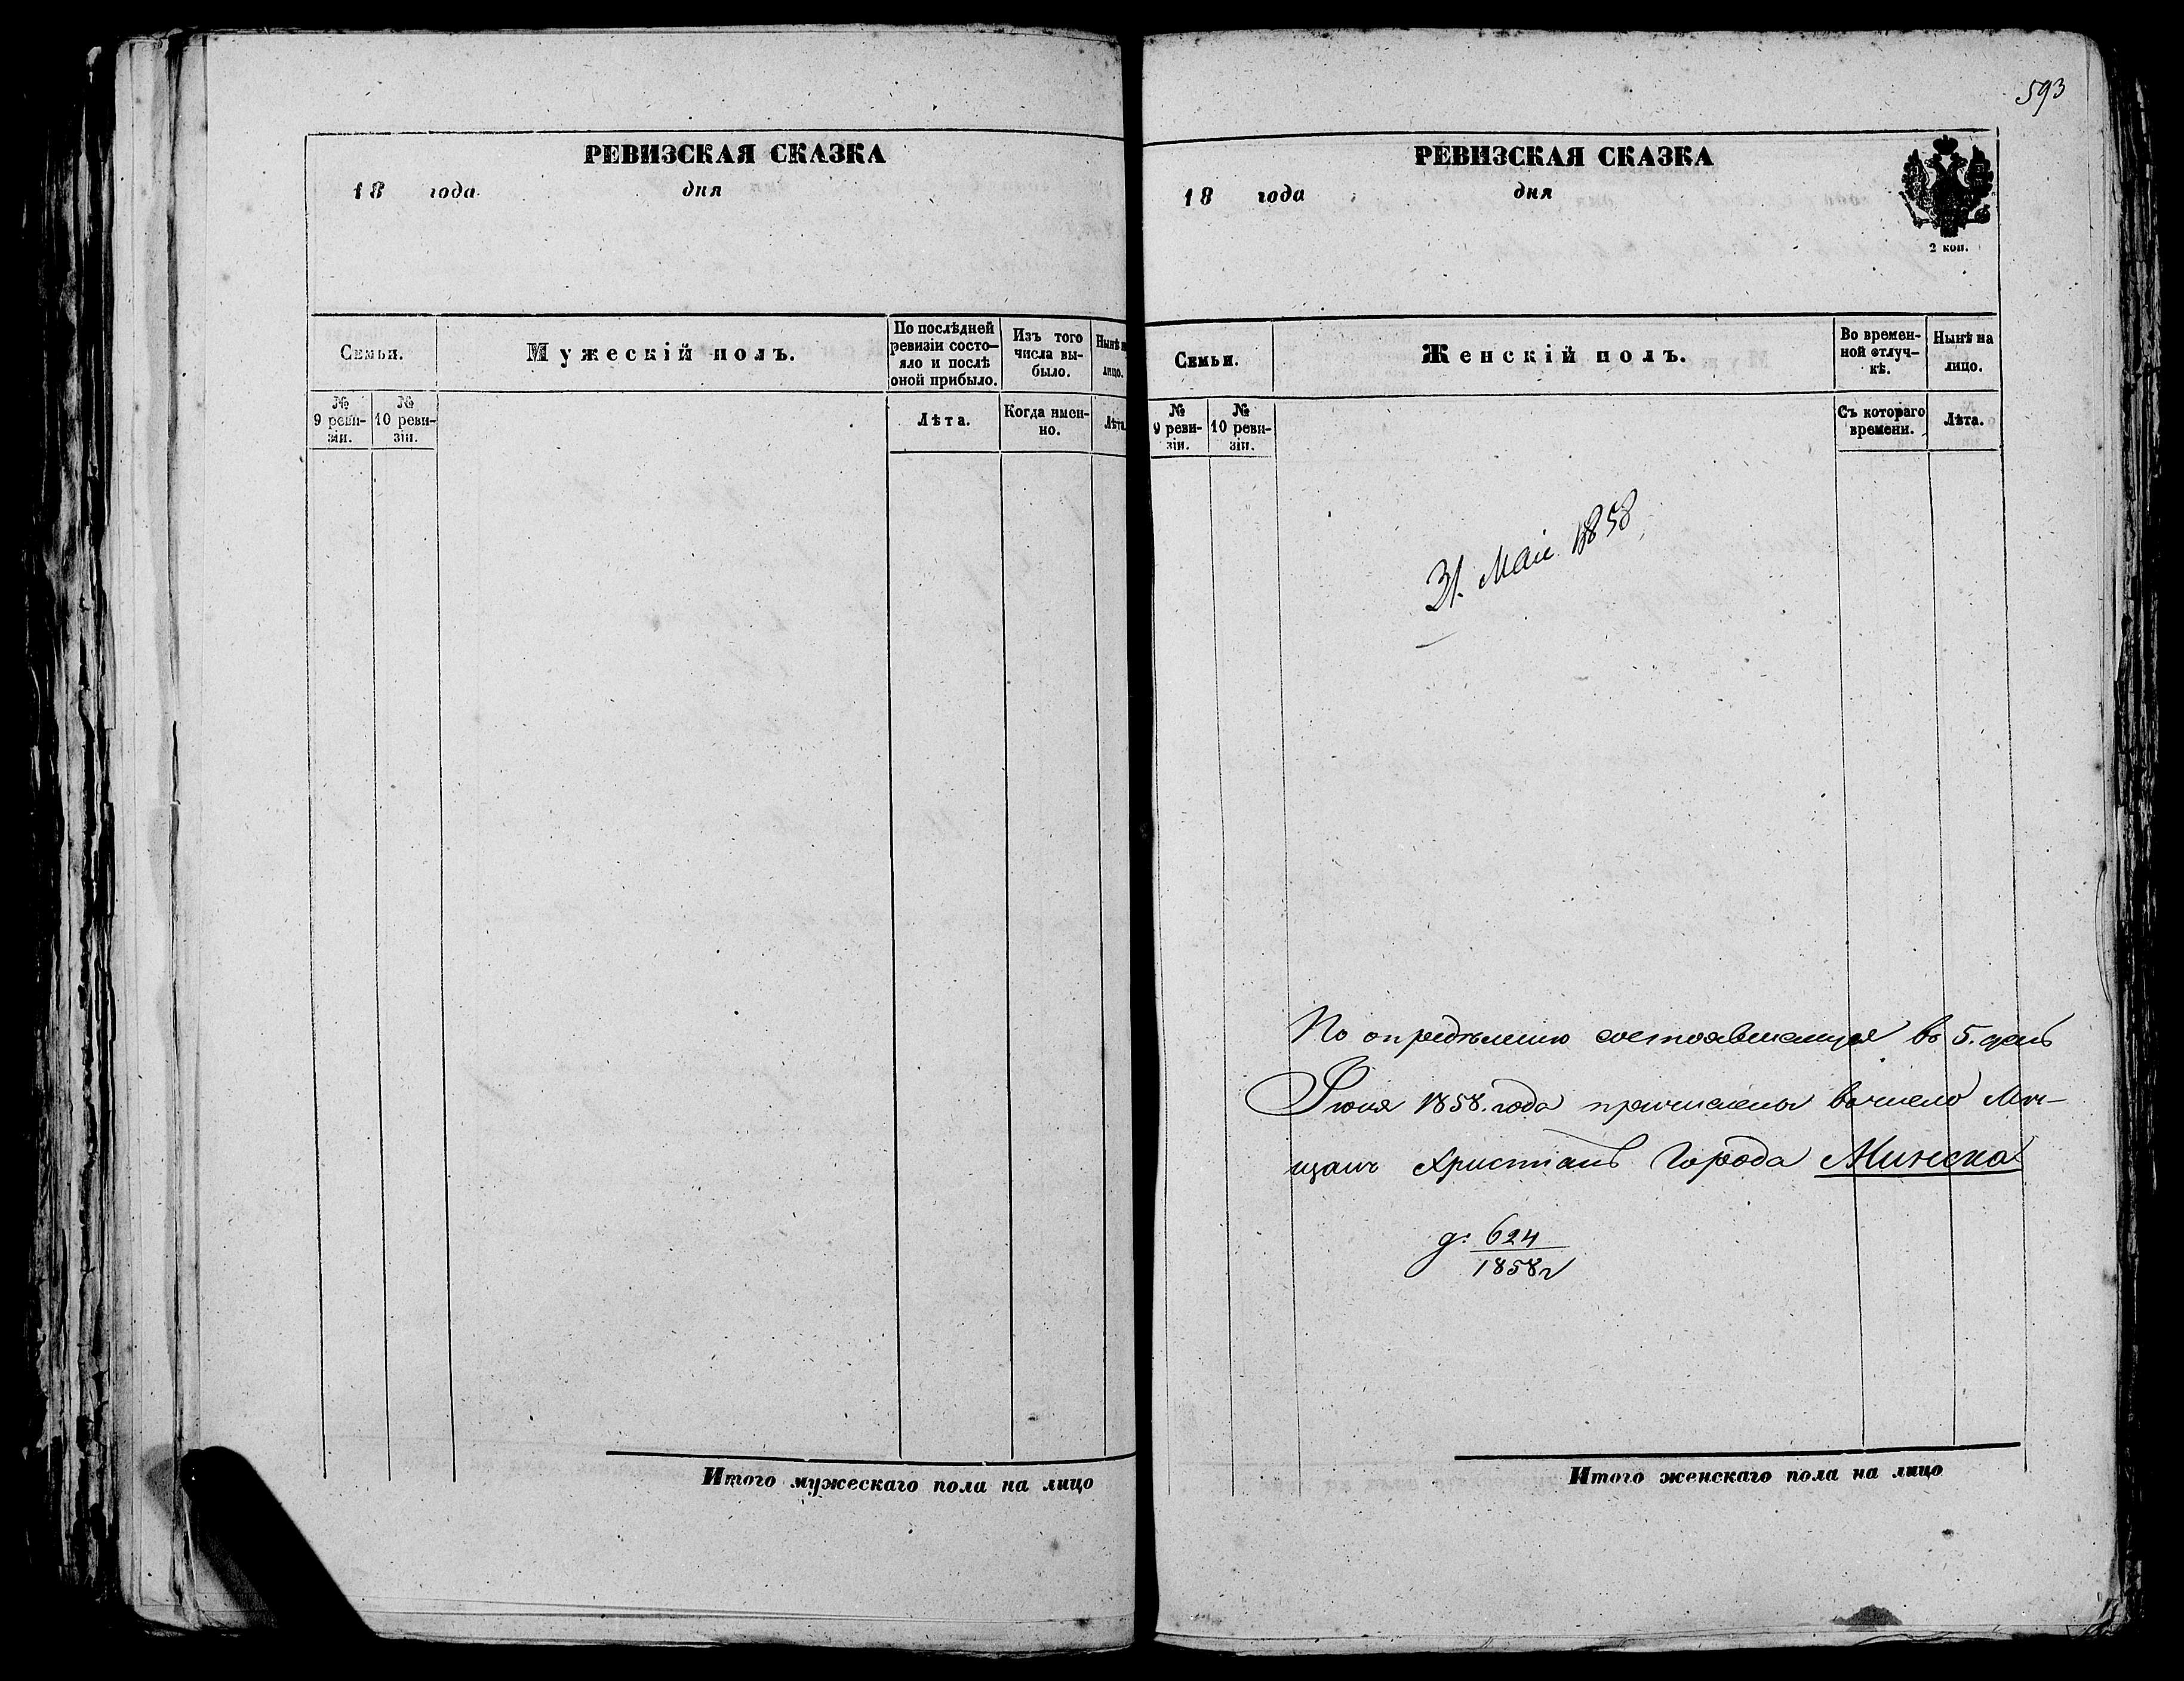 РЕВИЗСКАЯ СКАЗКА
18 года дня
Семьи.
Мужескій полъ.
По послѣдней
ревизіи состо-
яло и послѣ
оной прибыло.
Изъ того
числа вы-
было.
Нынѣ н
лицо.
№
9 реви-
зіи.
№
10 реви-
зіи.
Лѣта.
Когда имен-
но.
Лѣта
Итого мужескаго пола на лицо
593
РЕВИЗСКАЯ СКАЗКА
18 года дня
2 коп.
Семьи.
Женскій полъ.
Во времен-
ной отлуч-
кѣ.
Нынѣ на
лицо.
№
9 реви-
зіи.
№
10 реви-
зіи.
Съ котораго
времени.
Лѣта.
31. Маіи 1858
По опредѣленію состоявшемуся въ 5. день
Іюня 1858. года причислены вочисло Мѣ-
щанъ Христіанъ Города Минска
д: 624
1858 г
Итого женскаго пола на лицо